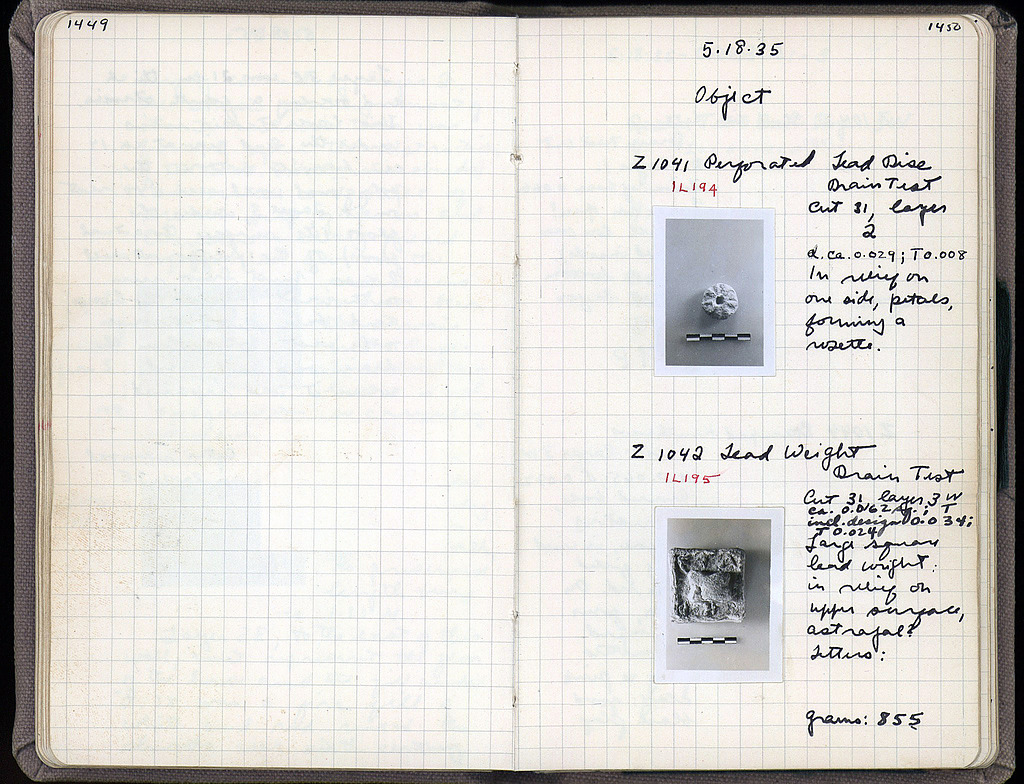 1449
1450
5.18.35
Object
Z 1041 Perforated Lead Disc
1L194
Drain Test
Cut 31, layer
2
d. ca. 0.029; T 0.008
In relief on
one side, petals,
forming a
rosette.
Z 1042 Lead Weight
1L195
Drain Test
Cut 31, layer 3
ca. 0.062 sq.; T
incl. design 0.034;
T 0.024
Large square
lead weight:
in relief on
upper surface,
astragal?
Letters:
grams: 855